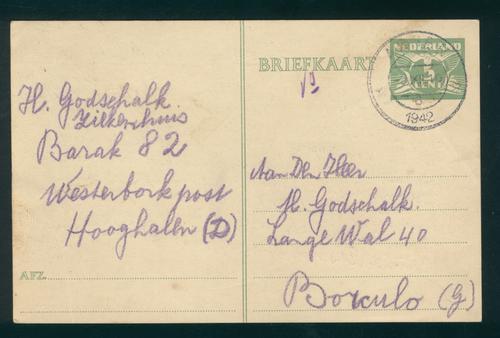 H. Godschalk.
Ziekenhuis
Barak 82
Westerbork post
Hooghalen (D)
AFZ.
BRIEFKAART
NEDERLAND
5
CENT
1942
Aan Den Heer
M. Godschalk.
Lange Wal 40
Borculo (G)